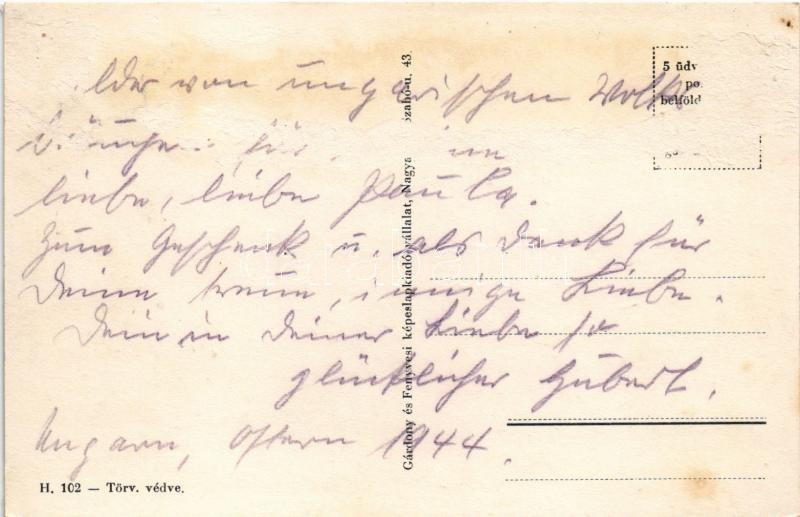 von ungarischen Volks
für
liebe, liebe Paula.
Zum Geschenk u. als Dank für
Deine treue, innige Liebe.
Dein in Deiner Liebe so
glücklicher Hubert.
Ungarn, Ostern 1944.
5 üdv
po
belföld
Gárdony és Fenyvesi képeslapkiadó vállalat, Nagya
szabó-u. 43.
H. 102 — Törv. védve.